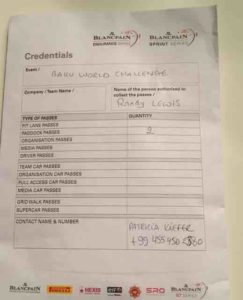 BLANCPAIN
ENDURANCE SERIES
BLANCPAIN
SPRINT SERIES
Credentials
Event /
BAKU WORLD CHALLENGE
Company / Team Name /
Name of the person authorised to
collect the passes /
Randy Lewis
TYPE OF PASSES
QUANTITY
PIT LANE PASSES
PADDOCK PASSES
2
ORGANISATION PASSES
MEDIA PASSES
DRIVER PASSES
TEAM CAR PASSES
ORGANISATION CAR PASSES
FULL ACCESS CAR PASSES
MEDIA CAR PASSES
GRID WALK PASSES
SUPERCAR PASSES
CONTACT NAME & NUMBER
PATRICIA KIEFER
BLANCPAIN
PIRELLI
HEXIS
SRO
BLANCPAIN